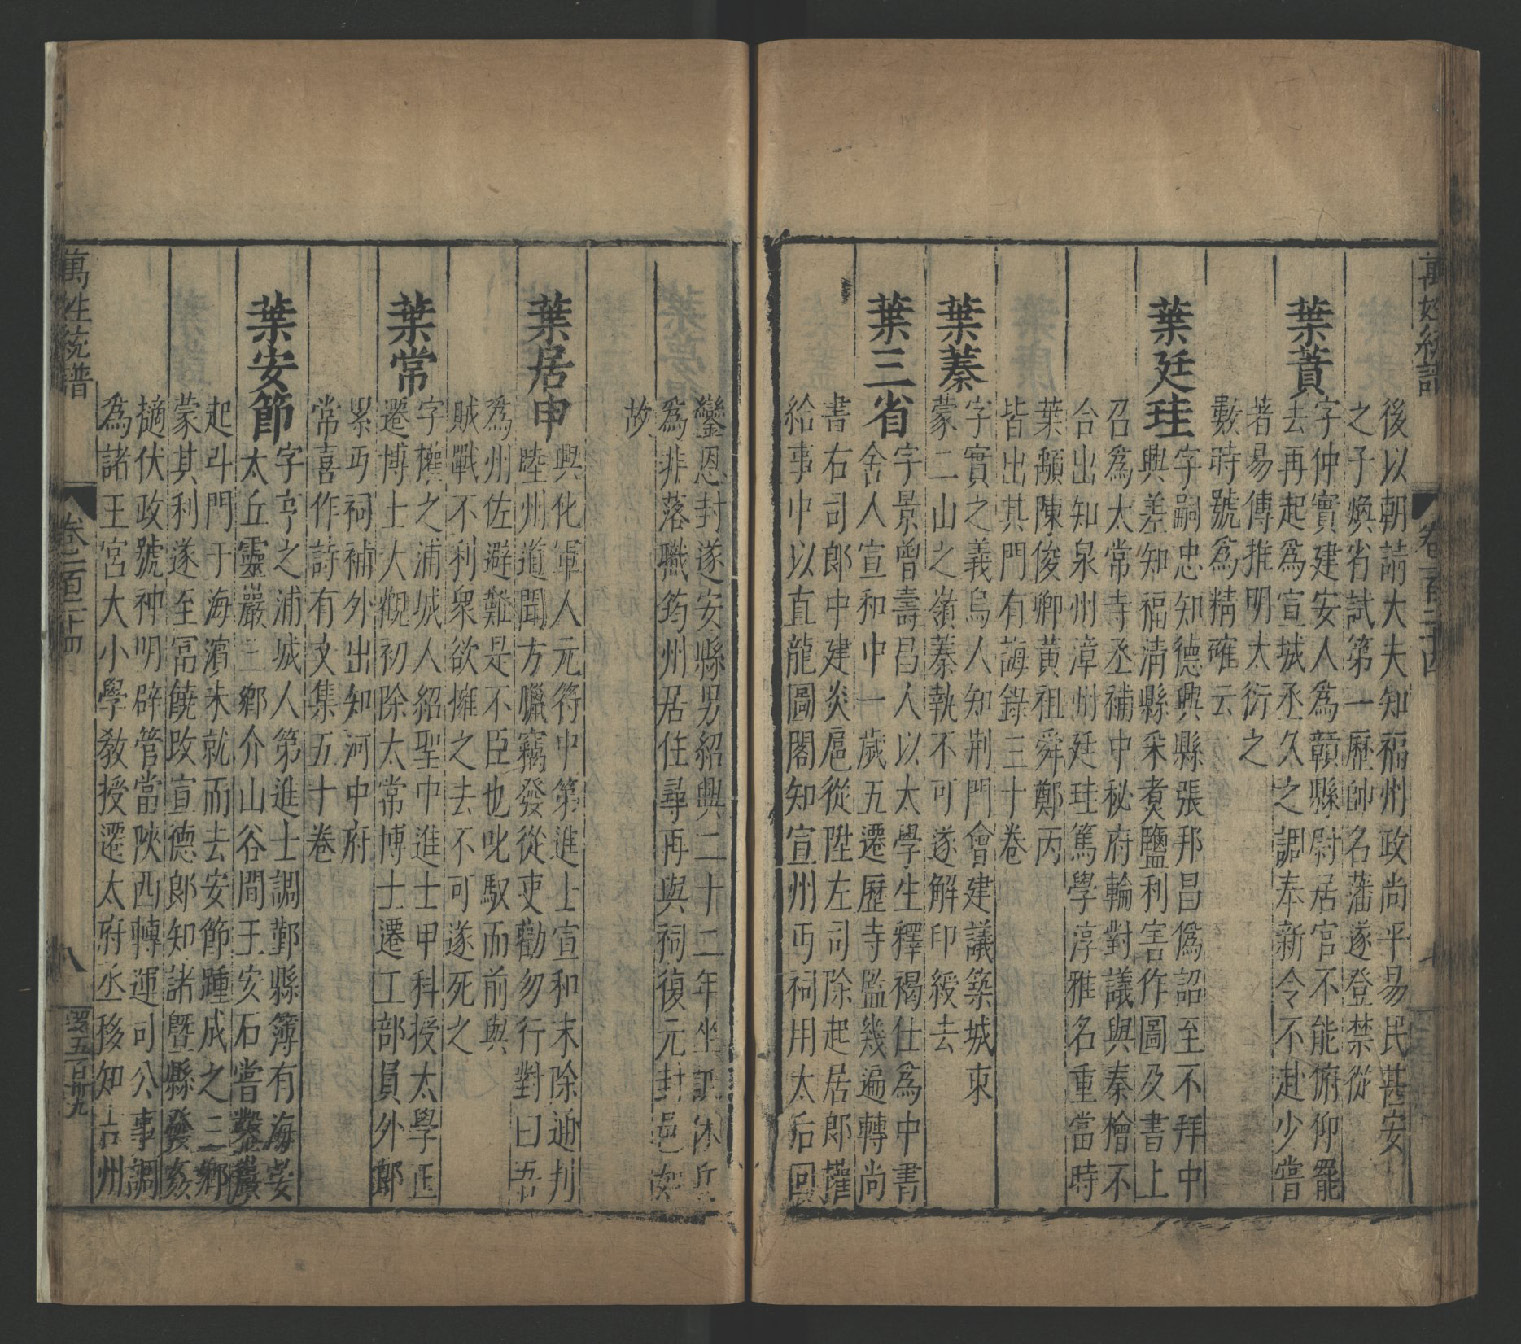 萬姓統譜 卷一百二十四
後以朝請大夫知福州政尚平易民甚安
之子煥省試第一歷帥名藩遂登禁從
葉蕡
字仲實建安人為贛縣尉居官不能俯仰罷
去再起為宣城丞久之調奉新令不赴少嘗
著易傳推明大衍之
數時號為精確云
葉廷珪
字嗣忠知德興縣張邦昌偽詔至不拜中
興差知福清縣采煑鹽利害作圖及書上
召為太常寺丞補中秘府輪對議與秦檜不
合出知泉州漳州廷珪篤學淳雅名重當時
葉顒陳俊卿黃祖舜鄭丙
皆出其門有海錄三十卷
葉蓁
字實之義烏人知荆門會建議築城東
蒙二山之嶺蓁執不可遂解印綬去
葉三省
字景曾壽昌人以太學生釋褐仕為中書
舍人宣和中一歲五遷歷寺監幾遍轉尚
書右司郎中建炎扈從陞左司除起居郎擢
給事中以直龍圖閣知宣州丐祠用太后回
鑾恩封遂安縣男紹興二十二年坐
為非落職筠州居住尋再與祠復元封邑如
故
葉居申
興化軍人元符中第進士宣和末除通判
睦州道聞方臘竊發從吏勸勿行對曰吾
為州佐避難是不臣也叱馭而前與
賊戰不利衆欲擁之去不可遂死之
葉常
字撫之浦城人紹聖中進士甲科授太學正
遷博士大觀初除太常博士遷工部員外郎
累丐祠補外出知河中府
常喜作詩有文集五十卷
葉安節
字亨之浦城人第進士調鄞縣簿有海安
太丘靈巖三鄉介山谷間王安石嘗鑿
起斗門于海濱未就而去安節踵成之三鄉
蒙其利遂至富饒改宣德郎知諸曁縣發姦
擿伏政號神明辟管當陝西轉運司公事調
為諸王宮大小學教授遷太府丞移知吉州
萬姓統譜 卷一百二十四 八